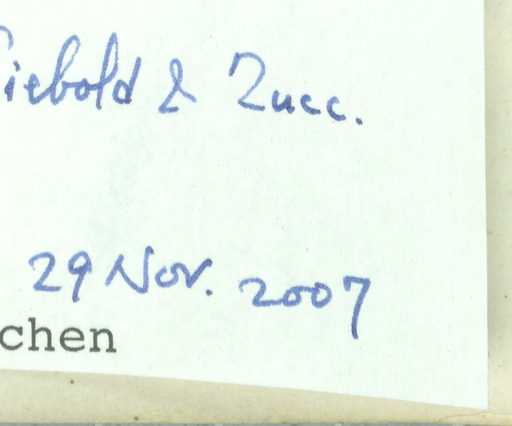 Siebold & Zucc.
29 Nov. 2007
chen